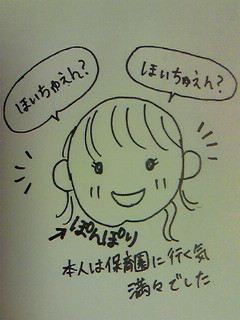 ほいちゅえん?
ほいちゅえん?
ぽんぽり
本人は保育園に行く気
満々でした